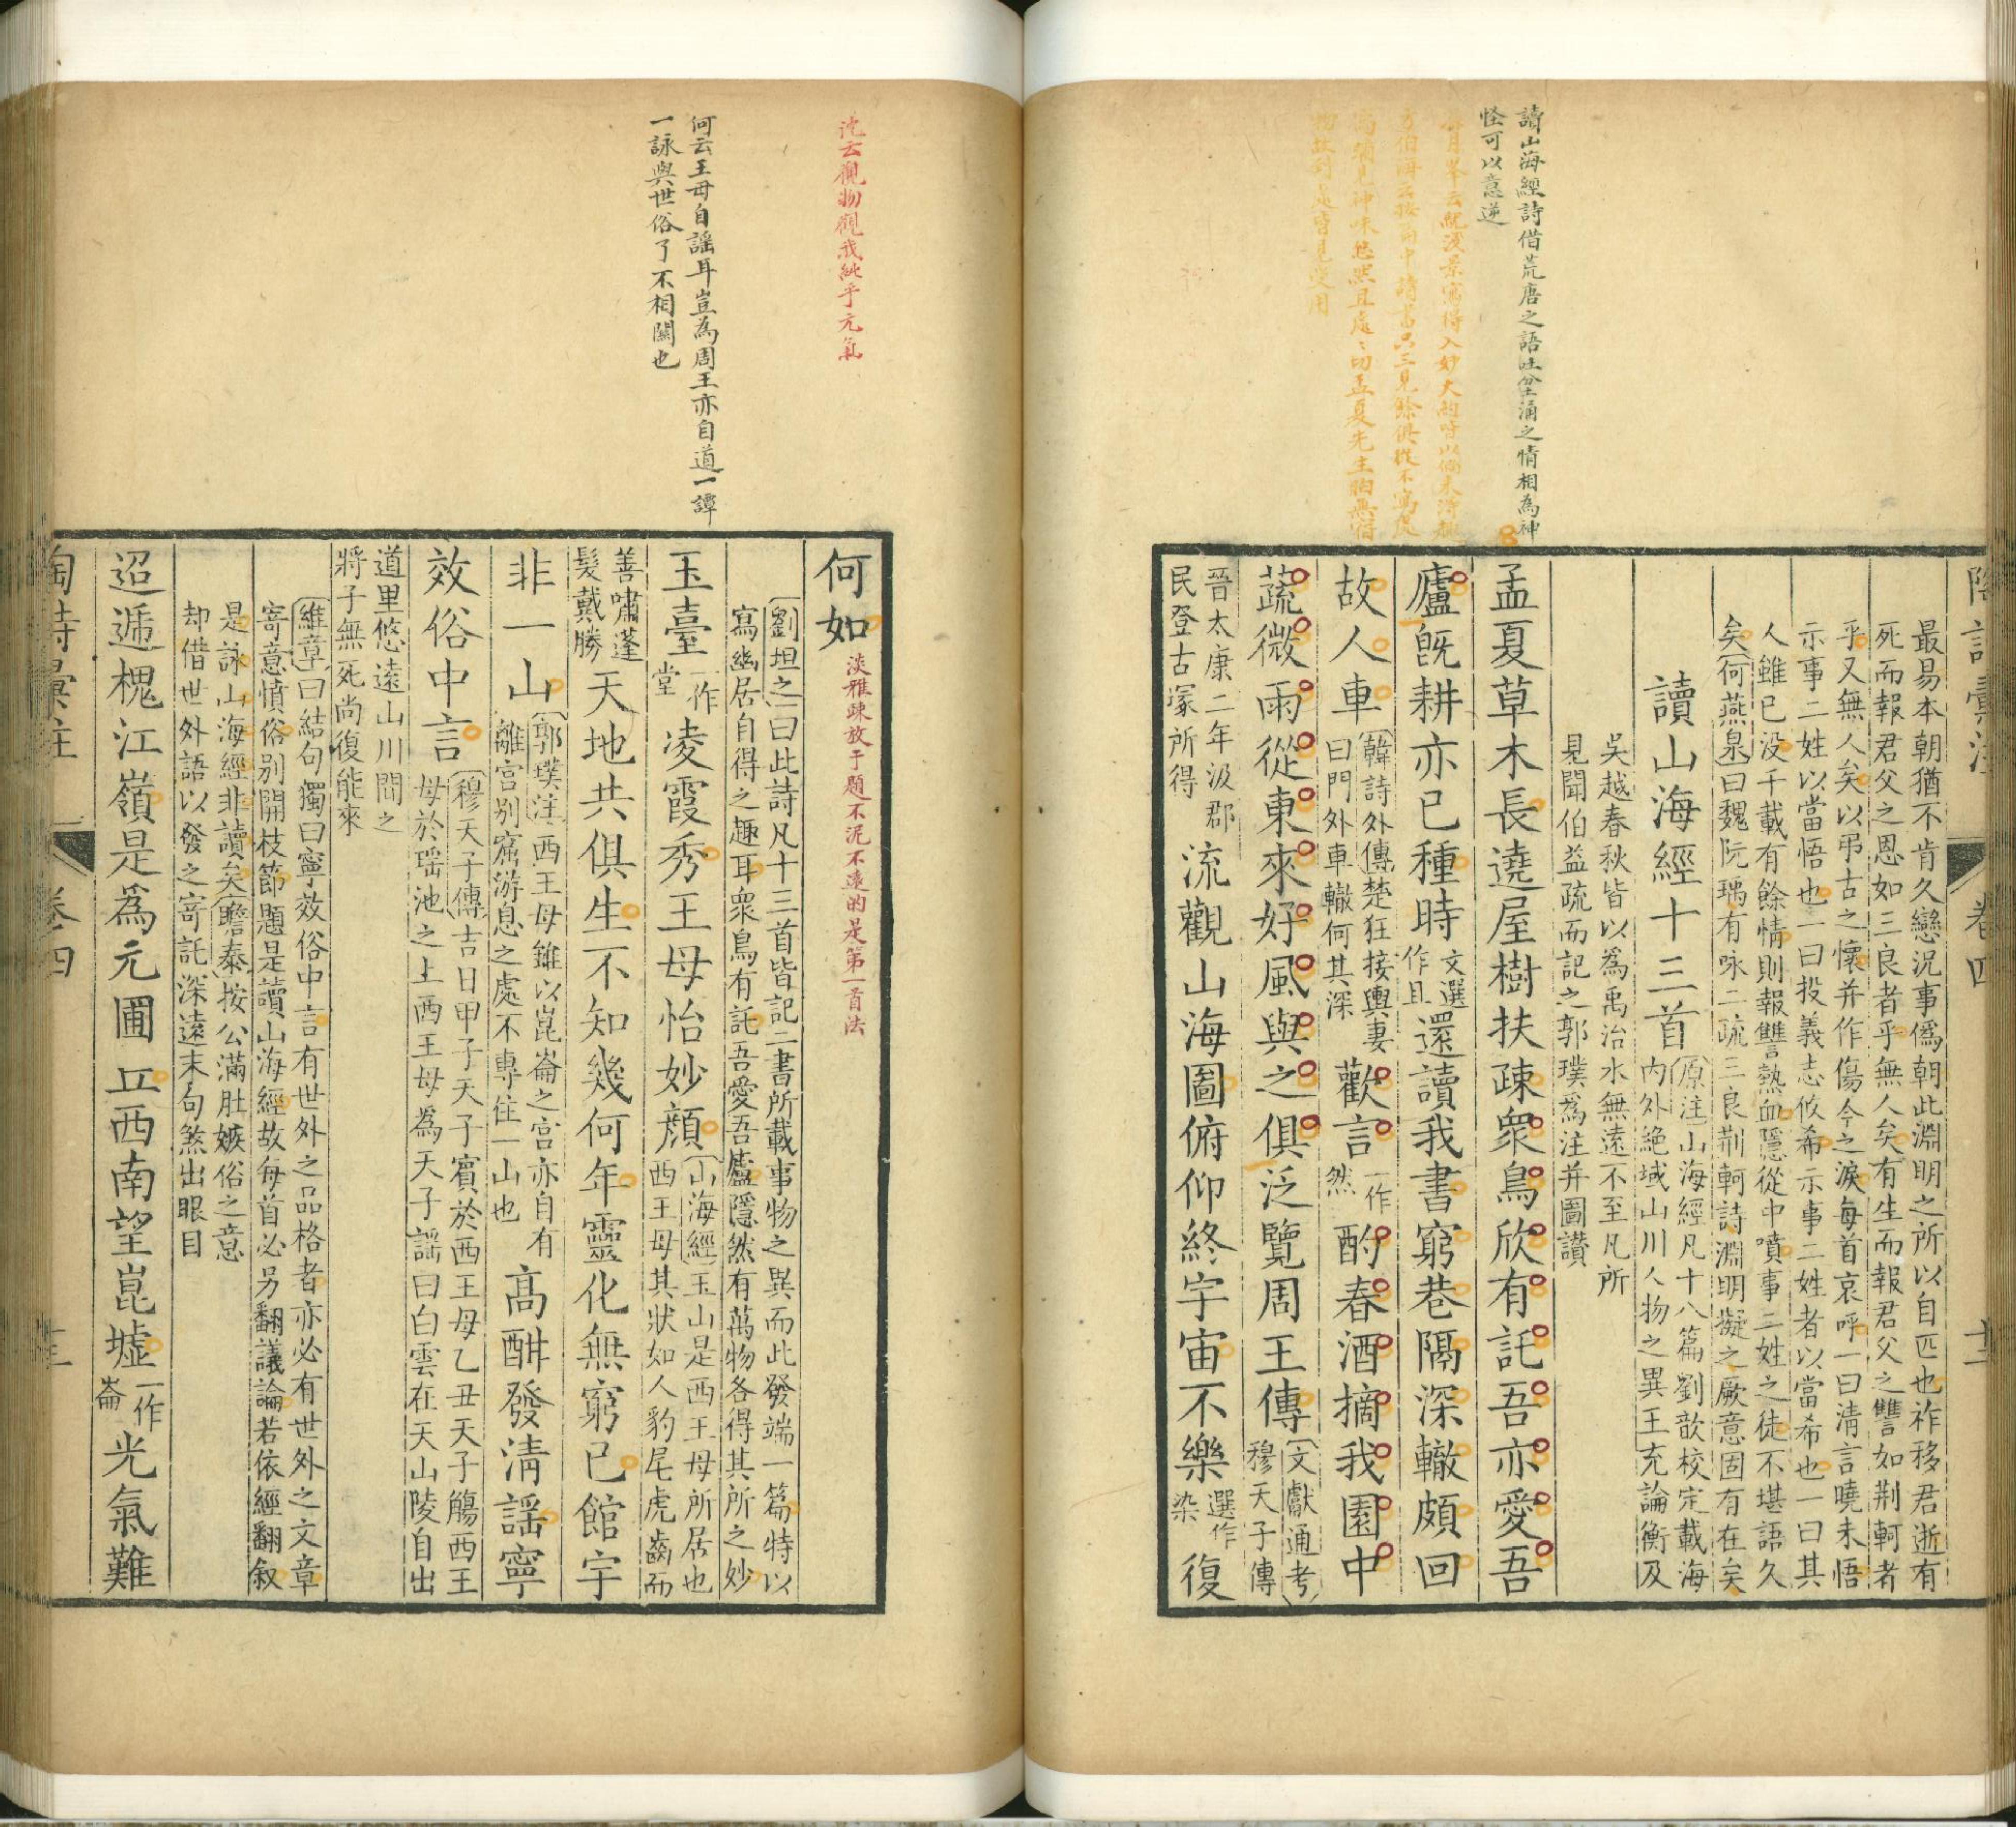 讀山海經詩借荒唐之語吐坌涌之情相為神
怪可以意逆
陶詩彙注
卷四
最易本朝猶不肯久戀況事僞朝此淵明之所以自匹也祚移君逝有
死而報君父之恩如三良者乎無人矣有生而報君父之讐如荆軻者
乎又無人矣以弔古之懷并作傷今之淚每首哀呼一曰淸言曉未悟
示事二姓以當悟也一曰投義志攸希示事二姓者以當希也一曰其
人雖已没千載有餘情則報讐熱血隱從中噴事二姓之徒不堪語久
矣何燕泉曰魏阮瑀有咏二疏三良荆軻詩淵明擬之厥意固有在矣
讀山海經十三首
原注山海經凡十八篇劉歆校定載海
内外絶域山川人物之異王充論衡及
吳越春秋皆以爲禹治水無遠不至凡所
見聞伯益疏而記之郭璞爲注并圖讃
孟夏草木長遶屋樹扶疎衆鳥欣有託吾亦愛吾
廬旣耕亦已種時
文選
作且
還讀我書窮巷隔深轍頗回
故人車
韓詩外傳楚狂接輿妻
曰門外車轍何其深
歡言
一作
然
酌春酒摘我園中
蔬微雨從東來好風與之俱泛覽周王傳
文獻通考
穆天子傳
晉太康二年汲郡
民登古塚所得
流觀山海圖俯仰終宇宙不樂
選作
染
復
沈云觀物觀我純乎元氣
何云王母自謡耳豈為周王亦自道一譚
一詠與世俗了不相關也
何如
淡雅疎放于題不泥不遠的是第一首法
劉坦之曰此詩凡十三首皆記二書所載事物之異而此發端一篇特以
寫幽居自得之趣耳衆鳥有託吾愛吾廬隱然有萬物各得其所之妙
玉臺
一作
堂
凌霞秀王母怡妙顔
山海經玉山是西王母所居也
西王母其狀如人豹尾虎齒而
善嘯蓬
髮戴勝
天地共俱生不知幾何年靈化無窮已館宇
非一山
郭璞注西王母雖以崑崙之宫亦自有
離宫别窟游息之處不專住一山也
高酣發淸謡寧
效俗中言
穆天子傳吉日甲子天子賓於西王母乙丑天子觴西王
母於瑶池之上西王母爲天子謡曰白雲在天山陵自出
道里悠遠山川間之
將子無死尚復能來
維章曰結句獨曰寧效俗中言有世外之品格者亦必有世外之文章
寄意憤俗别開枝節題是讀山海經故每首必另翻議論若依經翻叙
是詠山海經非讀矣瞻泰按公滿肚嫉俗之意
却借世外語以發之寄託深遠末句煞出眼目
迢遞槐江嶺是爲元圃丘西南望崑墟
一作
崙
光氣難
陶詩彙注
卷四